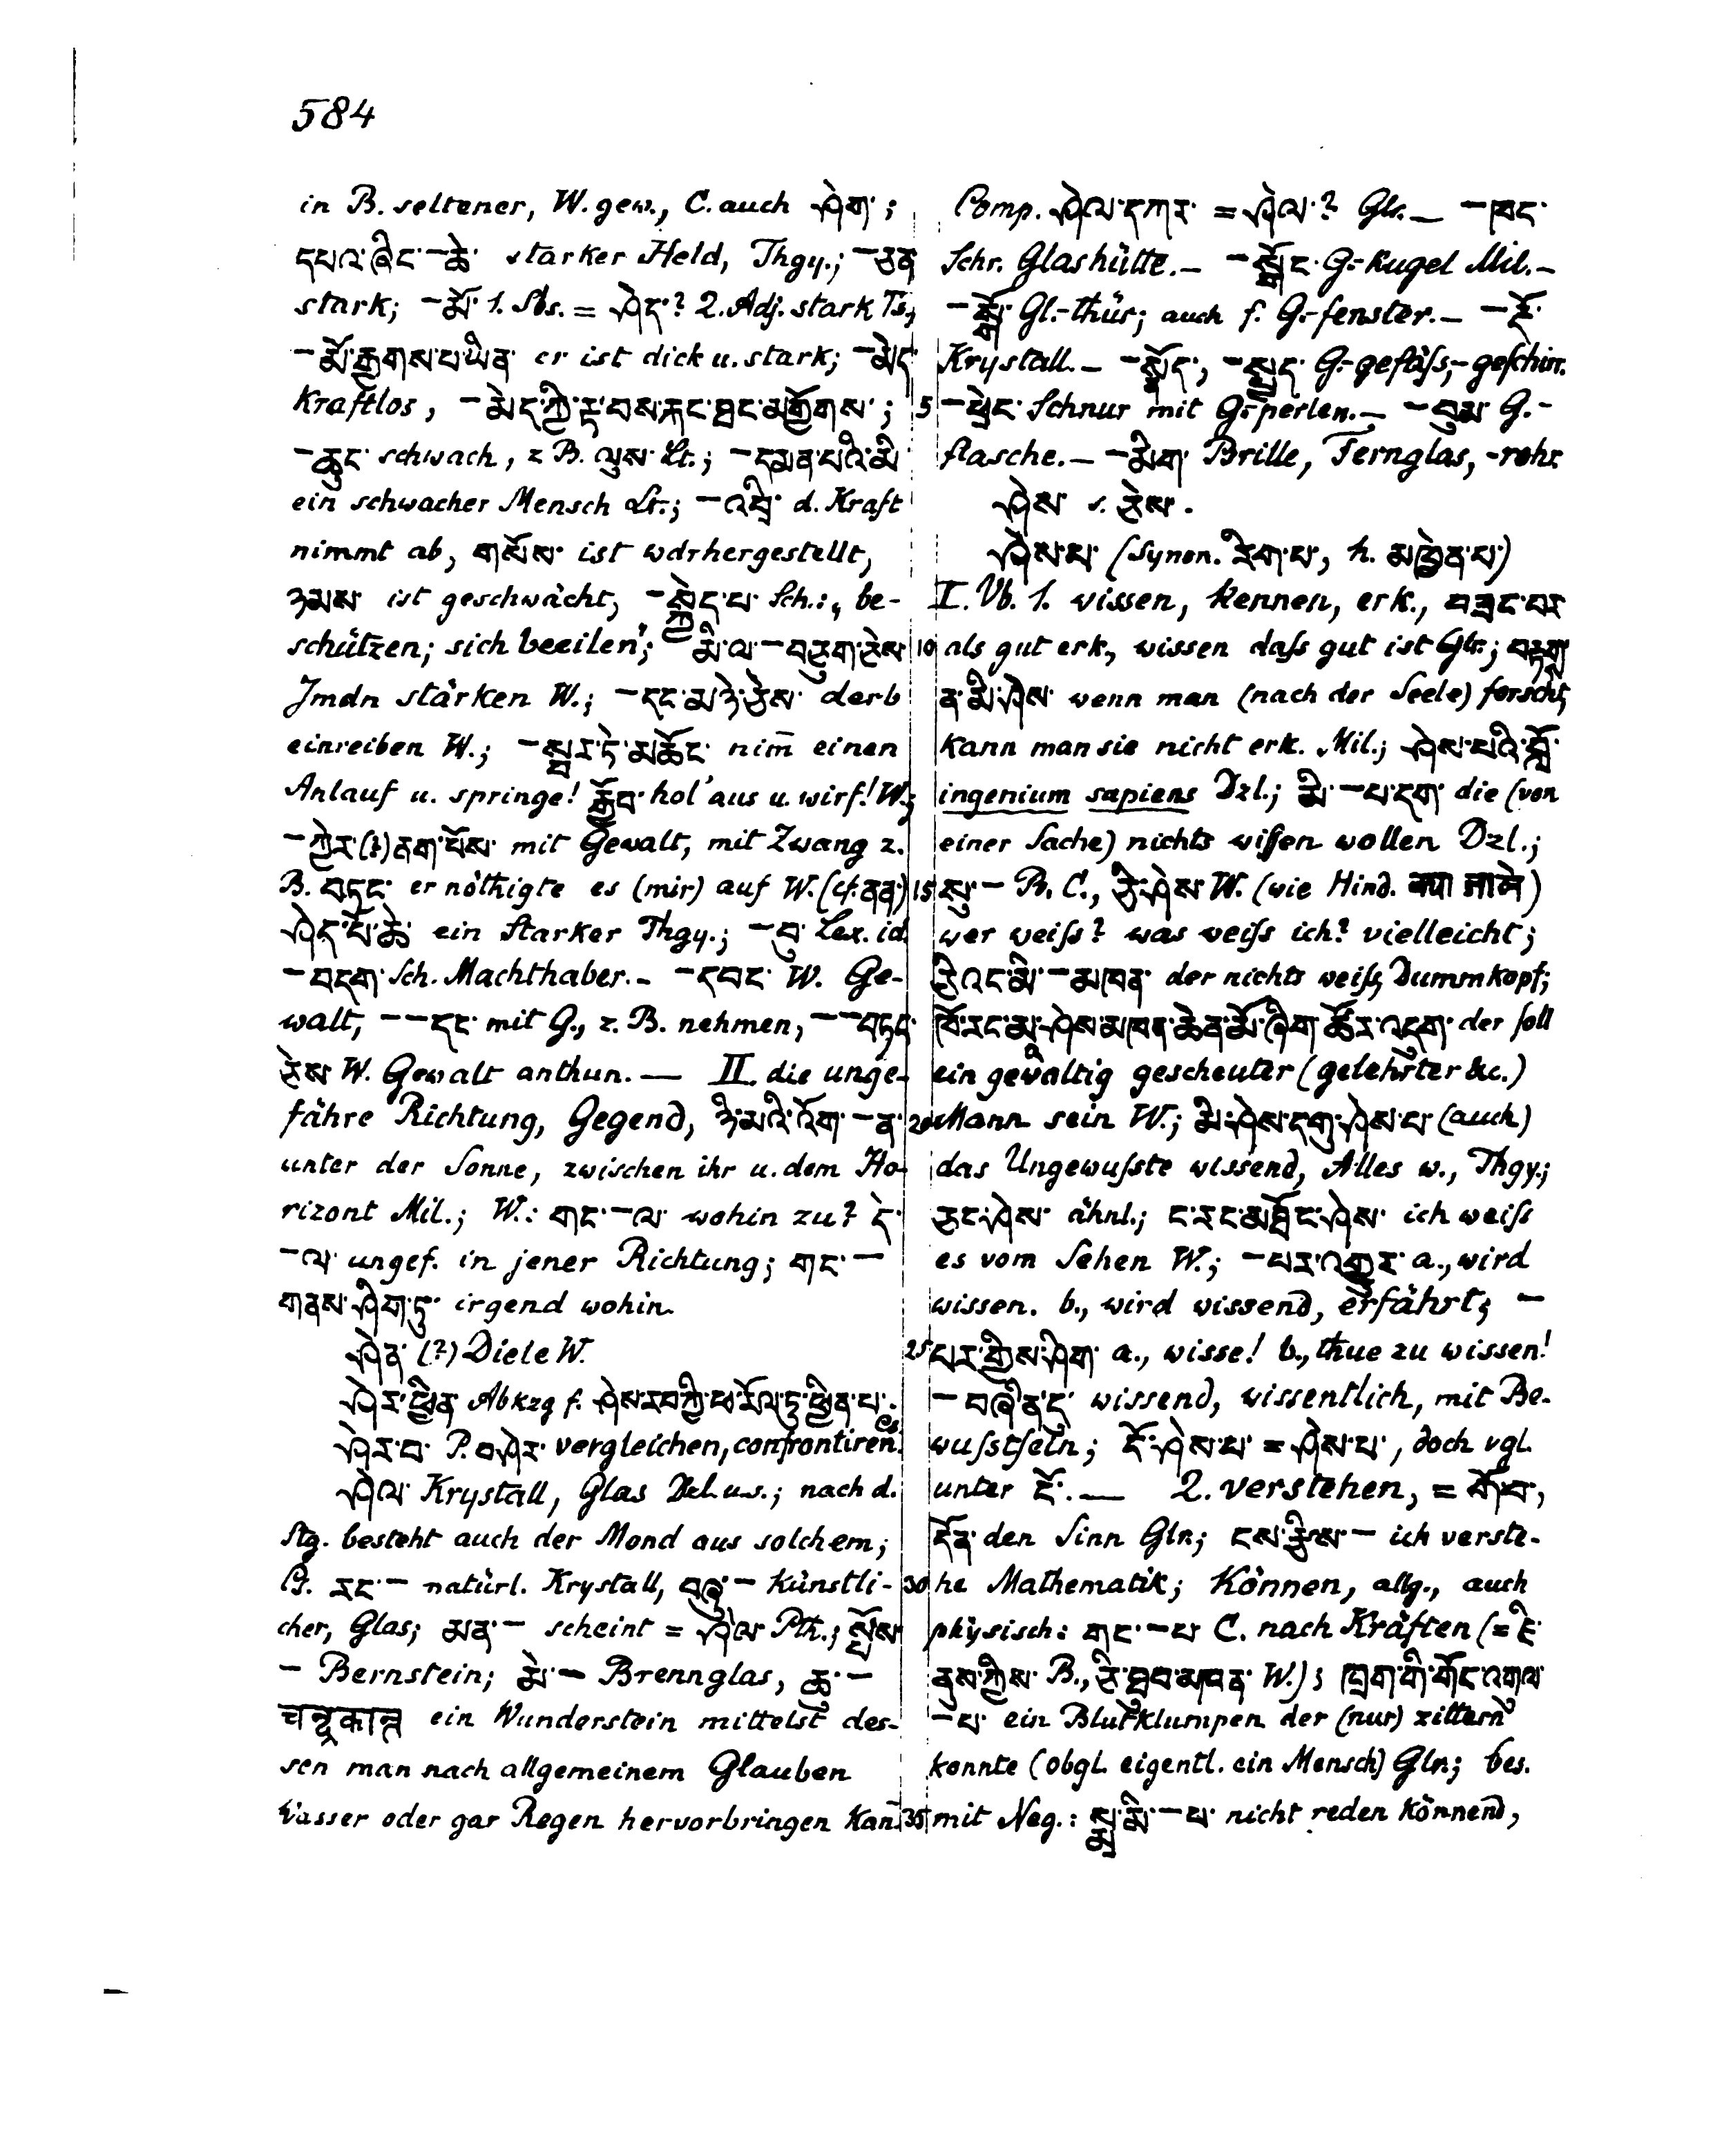 584
in B. seltener, W. gew., C. auch ཤེག་ ;
དཔའ་ཞིང་ – ཆེ་ starker Held, Thgy.; – ཅན
stark; – མོ་ 1. Sbs. = ཤེད་? 2. Adj. stark Ts.,
– མོ་རྒྱགས་པ་ཡིན་ er ist dick u. stark; – མེད་
kraftlos, – མེད་ཀྱི་རྟ་བས་རྐང་ཐང་མགྱོགས་ ;
– ཆུང་ schwach, z B. ལུས་ Lt.; – དམན་པའི་མི
ein schwacher Mensch Lt.; – འབྲི་ d. Kraft
nimmt ab, གསོས་ ist wdrhergestellt,
ཉམས་ ist geschwächt, – སྐྱེད་པ་ Sch.: „ be-
schützen; sich beeilen"; མི་ལ་ – བཅུག་ཅེས་
Jmdn stärken W.; – དང་མཉེ་ཅེས་ derb
einreiben W.; – སྦྲར་ཏེ་མཆོང་ nim̄ einen
Anlauf u. springe! རྒྱོབ་ hol' aus u. wirf! W.;
– ཀྱེར་ (?) ནག་པོས་ mit Gewalt, mit Zwang z.
B. བཏང་ er nöthigte es (mir) auf W. (cf. ནན་)
ཤེད་པོ་ཆེ་ ein Starker Thgy.; – བུ་ Lex. id.
– བདག་ Sch. Machthaber. – – དབང་ W. Ge-
walt, – – དང་ mit G., z. B. nehmen, – – བཏང་
ཅེས W. Gewalt anthun. — II. die unge-
fähre Richtung, Gegend, ཉི་མའི་འོག་ – ན་
unter der Sonne, zwischen ihr u. dem Ho-
rizont Mil.; W.: གང་ – ལ་ wohin zu? དེ་
– ལ་ ungef. in jener Richtung; གང་ –
གནས་ཤིག་ཏུ་ irgend wohin.
ཤེན་ (?) Diele W.
ཤེར་ཕྱིན་ Abkzg f. ཤེས་རབ་ཀྱི་ཕ་རོལ་ཏུ་ཕྱིན་པ་.
ཤེར་བ་ P. བཤེར་ vergleichen, confrontiren Cs.
ཤེལ་ Krystall, Glas Dzl. u. s.; nach d.
Stg. besteht auch der Mond aus solchem;
Lt. རང་ – natürl. Krystall, བཞུ་ – künstli-
cher, Glas; མན་ – scheint = ཤེལ་ Pth.; སྤོས་
– Bernstein; མེ་ – Brennglas, ཆུ་ –
चन्द्रकान्त ein Wunderstein mittelst des-
sen man nach allgemeinem Glauben
Wasser oder gar Regen hervorbringen kan̄.
Comp. ཤེལ་དཀར་ = ཤེལ་? Glr. – – ཁང་
Schr. Glashütte. – – སྒོང་ G.-kugel Mil. –
– སྒོ་ Gl.-thür; auch f. G.-fenster. – – རྡོ་
Krystall. – – སྣོད་, – སྤྱད་ G.-gefäſs, -geſchirr.
5 – ཕྲེང་ Schnur mit G.-perlen. – – བུམ་ G.-
flasche. – – མིག་ Brille, Fernglas, -rohr.
ཤེས་ s. ཅེས་.
ཤེས་པ་ (Synon. རིག་པ་, h. མཁྱེན་པ་)
I. Vb. 1. wissen, kennen, erk., བཟང་བར་
10 als gut erk., wissen daſs gut ist Glr.; བརྟགས
ན་མི་ཤེས་ wenn man (nach der Seele) forscht,
kann man sie nicht erk. Mil.; ཤེས་པའི་བློ་
ingenium sapiens Dzl.; མི་ – པ་དག་ die (von
einer Sache) nichts wiſſen wollen Dzl.;
15 སུ་ – B. C., ཅི་ཤེས་ W. (wie Hind. क्या जाने)
wer weiſs? was weiſs ich? vielleicht;
ཅི་འང་མི་ – མཁན་ der nichts weiſs, Dummkopf;
ཁོ་རང་མ་ཤེས་མཁན་ཆེན་མོ་ཞིག་ཚོར་འདུག་ der soll
ein gewaltig gescheuter (gelehrter &c.)
20 Mann sein W.; མི་ཤེས་དགུ་ཤེས་པ་ (auch)
das Ungewuſste wissend, Alles w., Thgy.;
ཅང་ཤེས་ ähnl.; ང་རང་མཐོང་ཤེས་ ich weiſs
es vom Sehen W.; – པར་འགྱུར་ a., wird
wissen. b., wird wissend, erfährt; –
25 པར་གྱིས་ཤིག་ a., wisse! b., thue zu wissen!
– བཞིན་དུ་ wissend, wissentlich, mit Be-
wuſstſeln; ངོ་ཤེས་པ་ = ཤེས་པ་, doch vgl.
unter ངོ་. — 2. verstehen, = གོ་བ་,
དོན་ den Sinn Glr.; ངས་རྩིས་ – ich verste-
30 he Mathematik; können, allg., auch
physisch: གང་ – པ་ C. nach Kräften (= ཇི་
ནུས་ཀྱིས་ B., ཅི་ཐུབ་མཁན་ W.); ཁྲག་གི་གོང་འགུལ་
– པ་ ein Blutklumpen der (nur) zittern
konnte (obgl. eigentl. ein Mensch) Glr.; bes.
35 mit Neg.: སྨྲ་མི་ – པ་ nicht reden könnend,